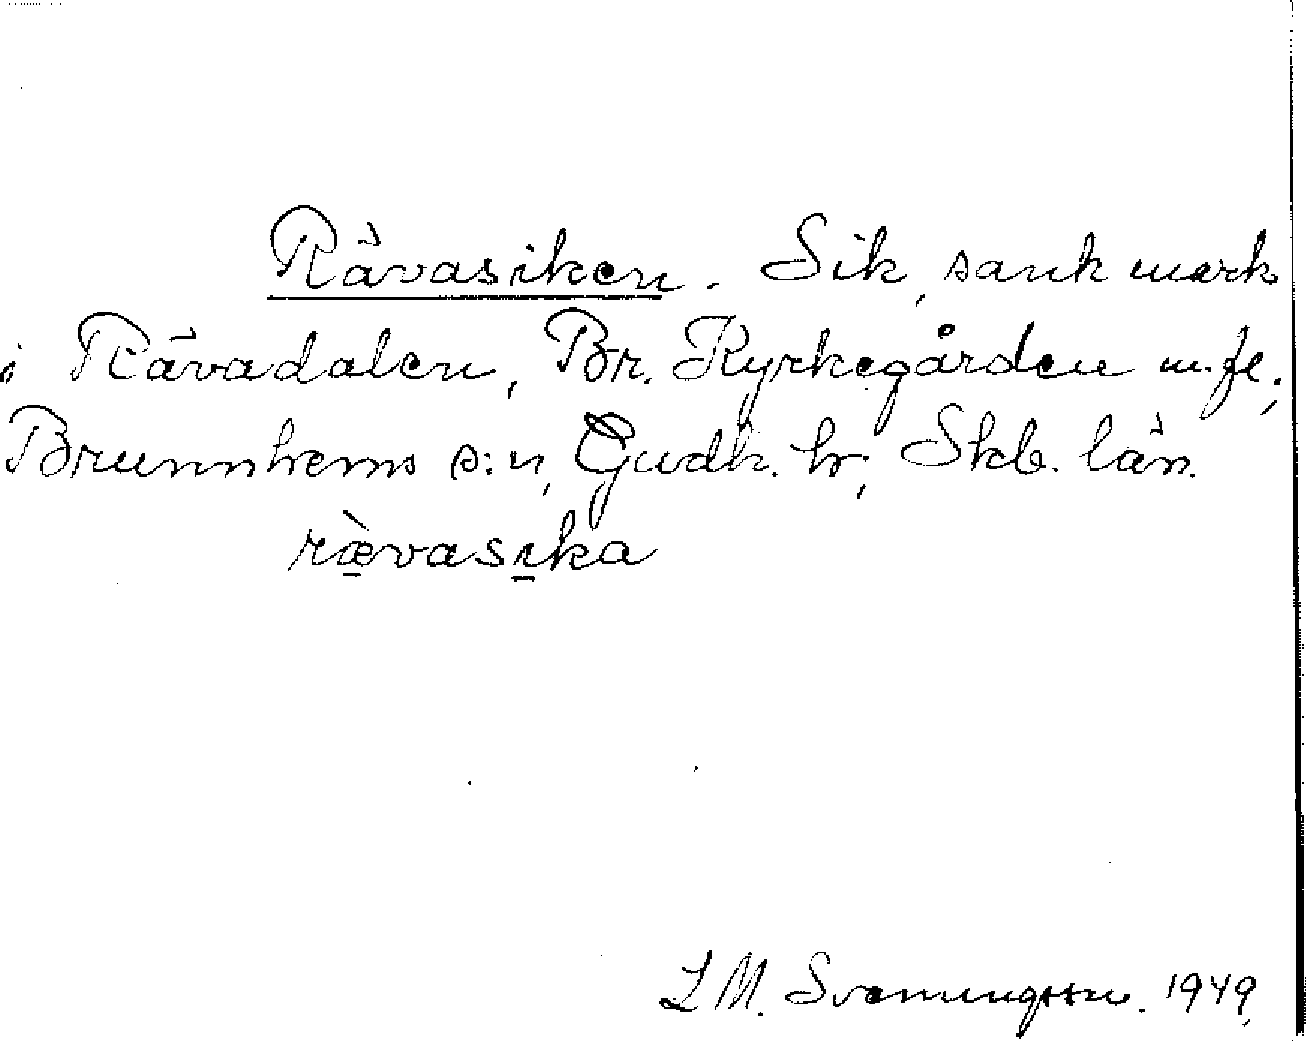 Rävasiken. Sik, sank mark
i Rävadalen, Br. Kyrkegården m.fl.,
Brunnhems s:n, Gudh. hr, Skb. län.
rævasika
L M. Svenungsson. 1949.